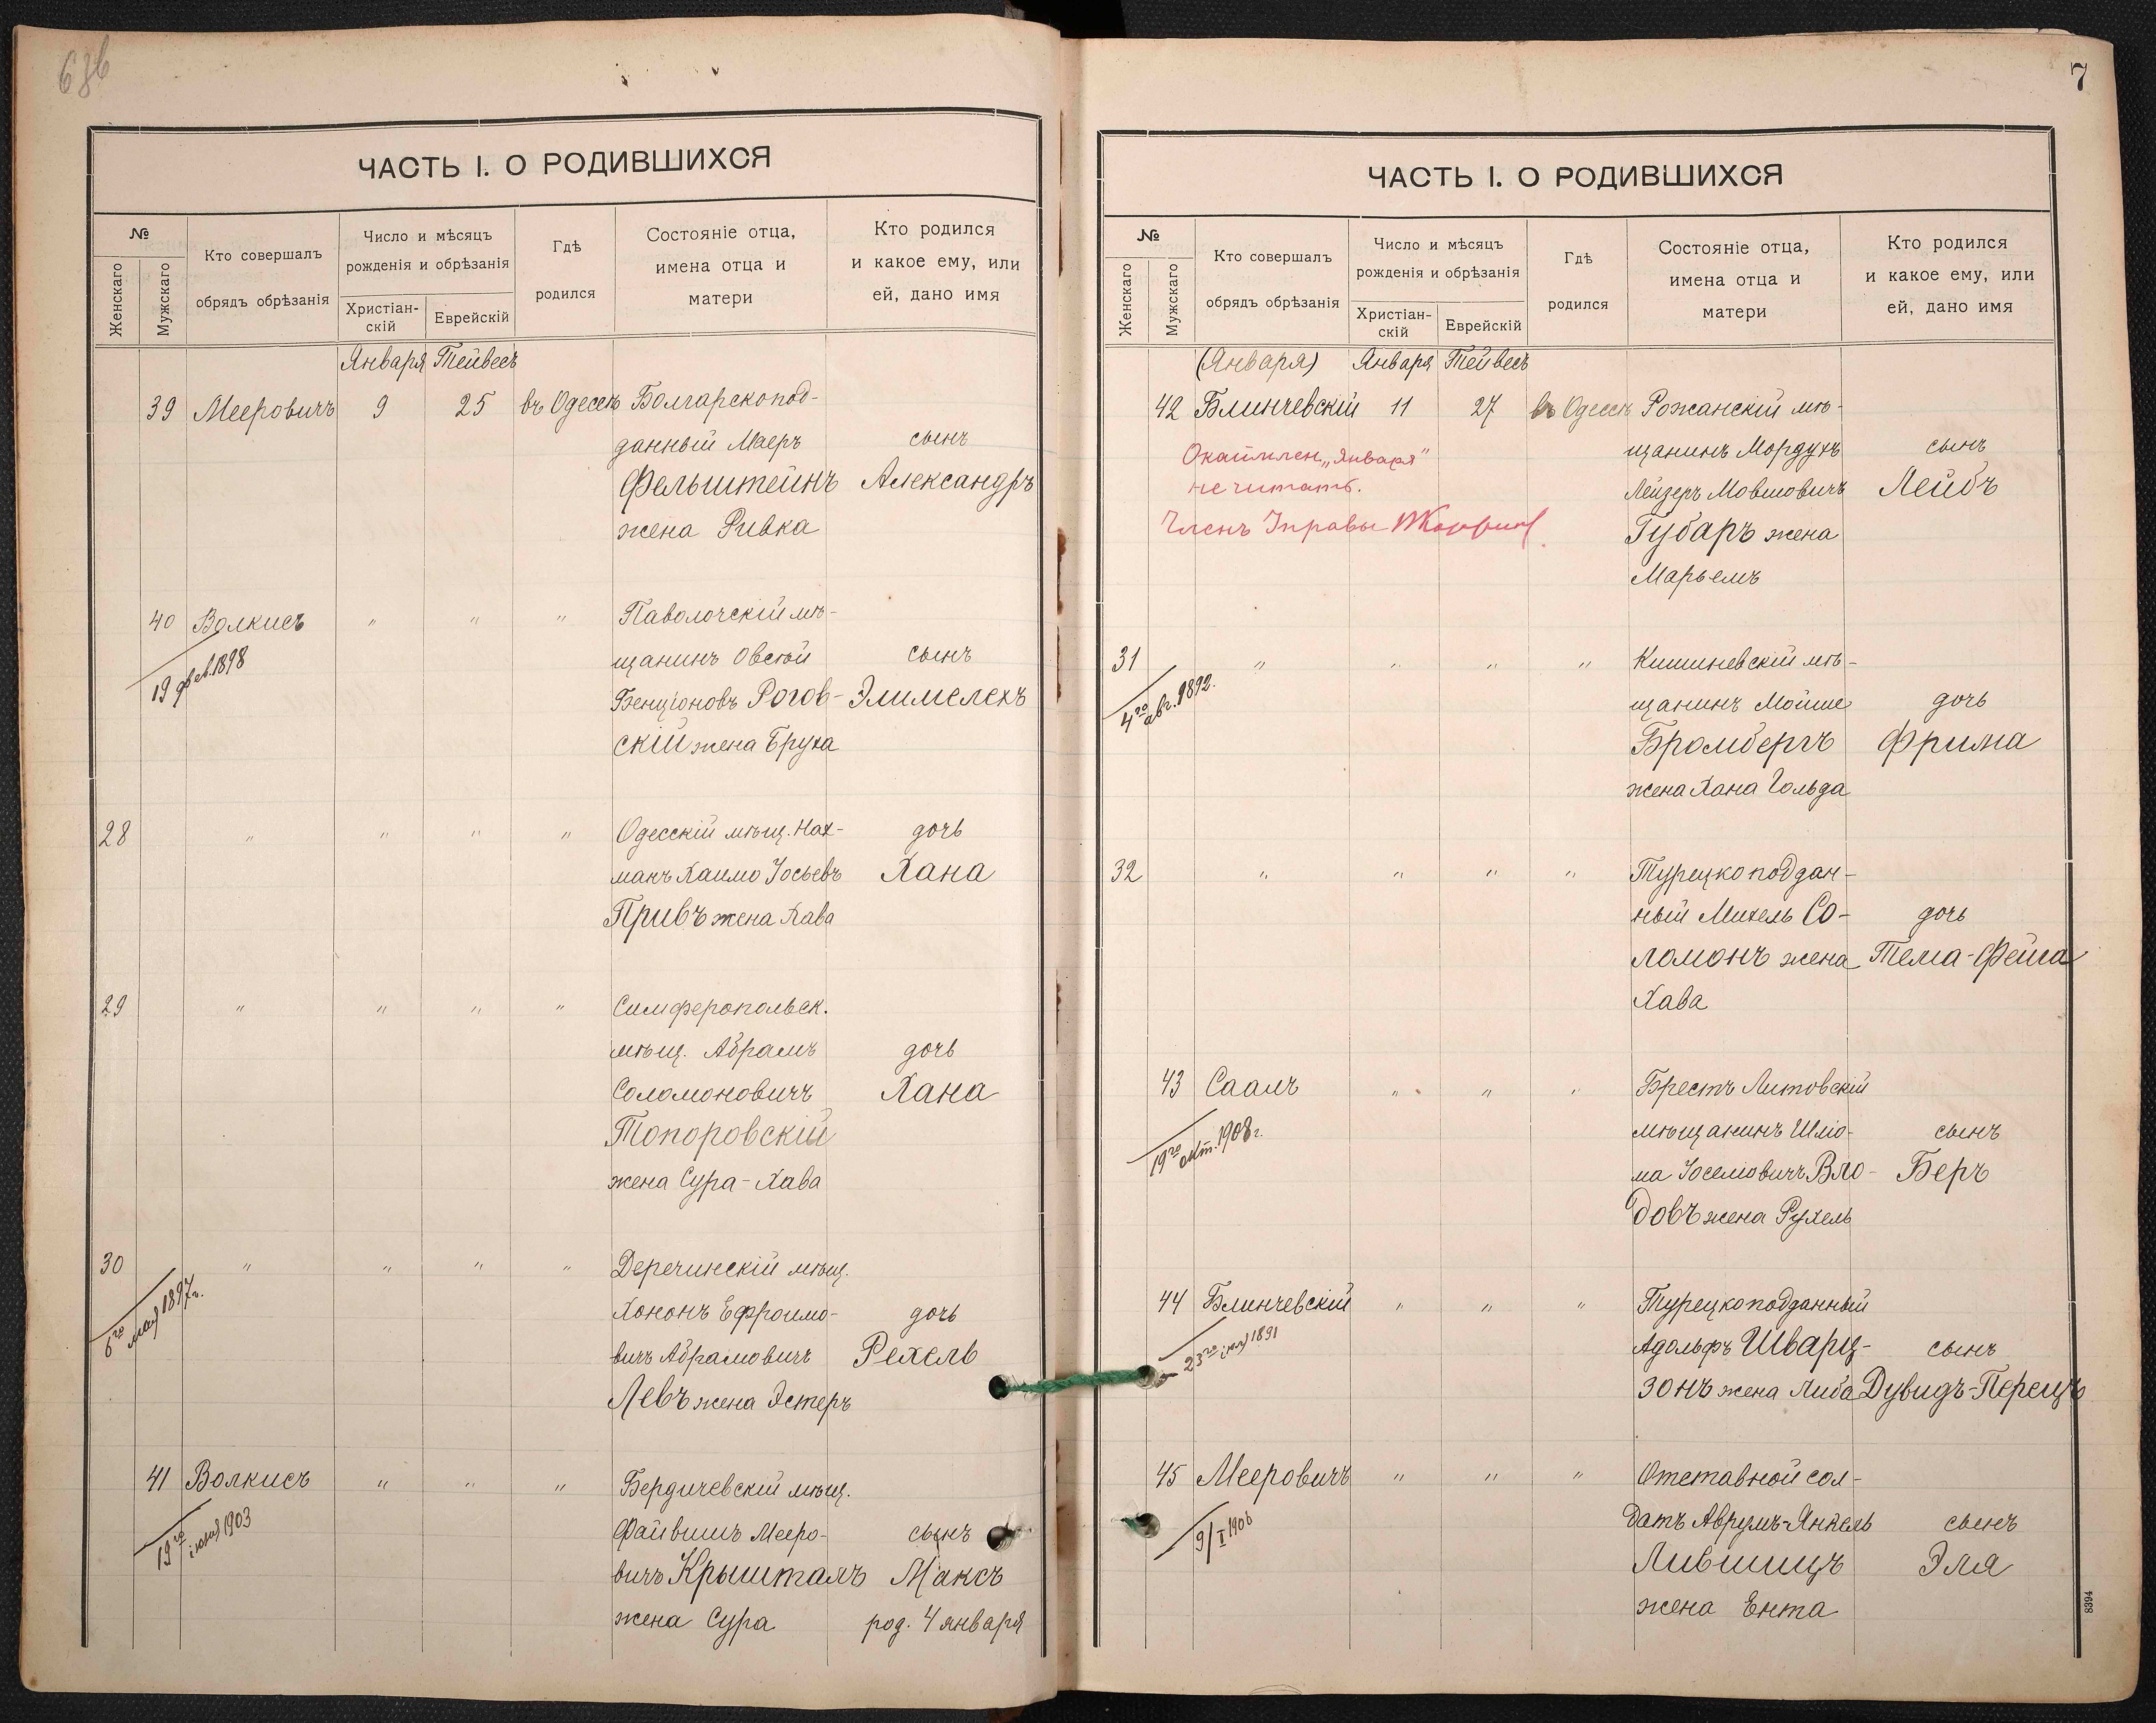 ЧАСТЬ I. О РОДИВШИХСЯ
№
Женскаго
Мужскаго
Кто совершалъ
обрядъ обрѣзанія
Число и мѣсяцъ
рожденія и обрѣзанія
Христіан-
скій
Еврейскій
Гдѣ
родился
Состояніе отца,
имена отца и
матери
Кто родился
и какое ему, или
ей, дано имя
Января Тейвесъ
39 Мееровичъ 9 25 въ Одессѣ Болгарскопод-
данный Маеръ сынъ
Фельштейнъ Александръ
жена Ривка
40 Волкисъ " " " Паволочскій мѣ-
19 фев. 1898
щанинъ Овсѣй сынъ
Бенціоновъ Рогов- Элимелехъ
скій жена Бруха
28 " " " " Одесскій мѣщ. Нах- дочь
манъ Хаимо Іосьевъ Хана
Привъ жена Хава
29 " " " " Симферопольск.
мѣщ. Абрамъ дочь
Соломоновичъ Хана
Топоровскій
жена Сура-Хава
30 " " " " Деречинскій мѣщ.
6го мая 1897г.
Хононъ Ефроимо- дочь
вичъ Абрамовичъ Рехель
Левъ жена Эстеръ
41 Волкисъ " " " Бердичевскій мѣщ.
19го іюня 1903
Файвишъ Мееро- сынъ
вичъ Крышталъ Максъ
жена Сура род. 4 января
7
ЧАСТЬ I. О РОДИВШИХСЯ
№
Женскаго
Мужскаго
Кто совершалъ
обрядъ обрѣзанія
Число и мѣсяцъ
рожденія и обрѣзанія
Христіан-
скій
Еврейскій
Гдѣ
родился
Состояніе отца,
имена отца и
матери
Кто родился
и какое ему, или
ей, дано имя
(Января) Января Тейвесъ
42 Блинчевскій 11 27 въ Одессѣ Рожанскій мѣ-
щанинъ Мордухъ сынъ
Окаймлен. „Января"
Лейзеръ Мовшовичъ Лейбъ
не читать.
Членъ Управы
Губаръ жена
Марьемъ
31 " " " " Кишиневскій мѣ-
4го авг. 1892.
щанинъ Мойше дочь
Бромбергъ Фрима
жена Хана Гольда
32 " " " " Турецкоподдан-
ный Михель Со- дочь
ломонъ жена Тема-Фейга
Хава
43 Саалъ " " " Брестъ Литовскій
19го окт. 1908г.
мѣщанинъ Шлio- сынъ
ма Іоселіовичъ Вло- Беръ
довъ жена Рухель
44 Блинчевскій " " " Турецкоподданный
23го 1891
Адольфъ Шварц- сынъ
зонъ жена Либа Дувидъ-Перецъ
45 Мееровичъ " " " Отставной сол-
9/I 1906
датъ Аврумъ-Янкель сынъ
Лившицъ Эля
жена Ента
8394